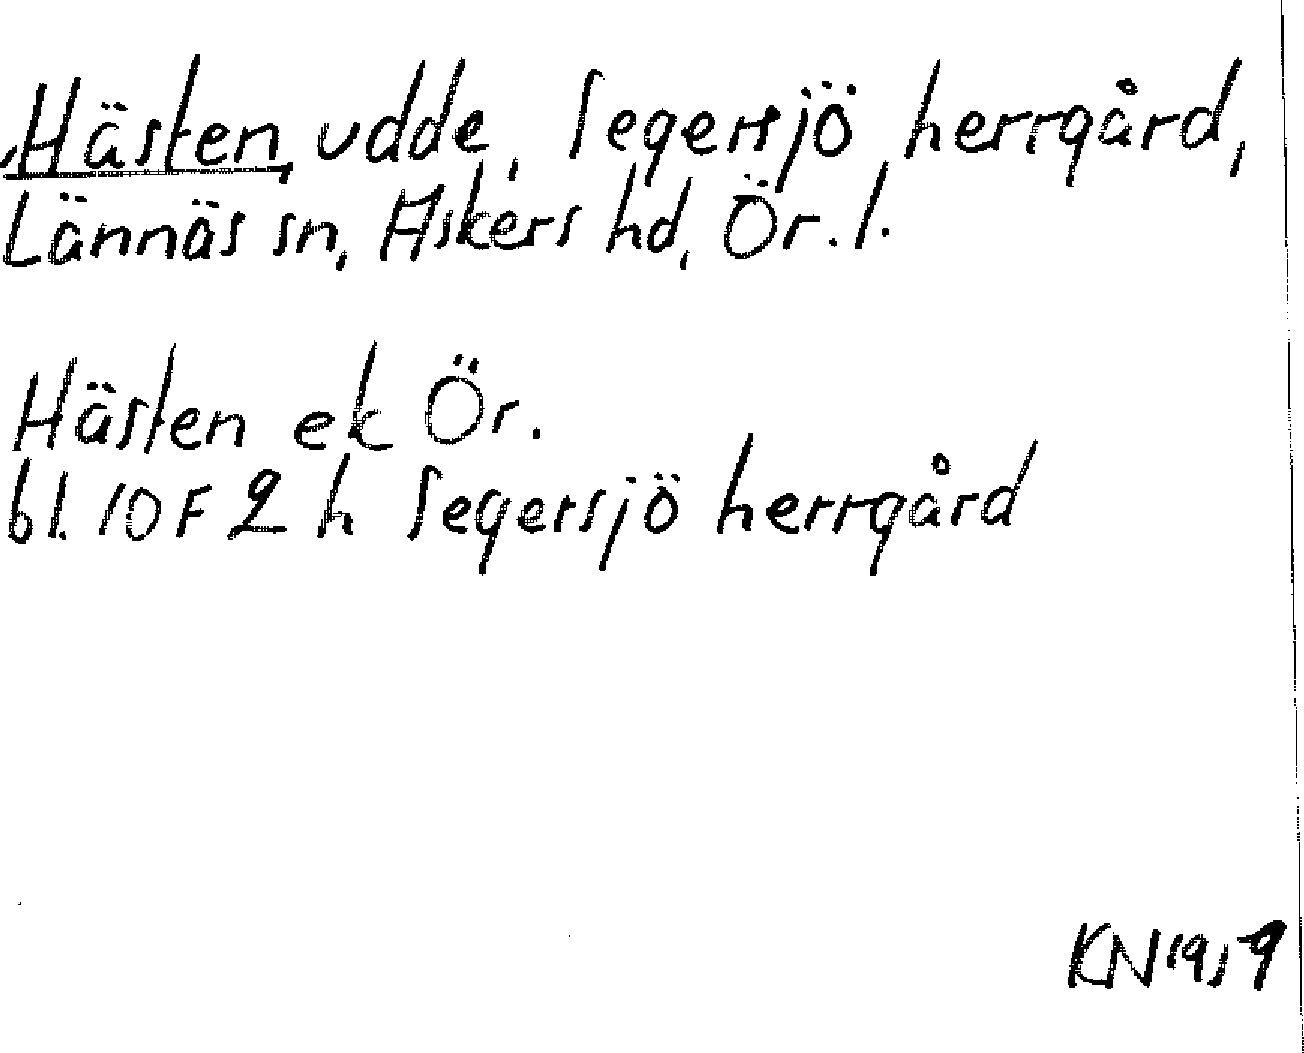 Hästen, udde, Segersjö herrgård,
Lännäs sn, Askers hd, Ör. l.
Hästen ek Ör.
bl. 10 F 2 h Segersjö herrgård